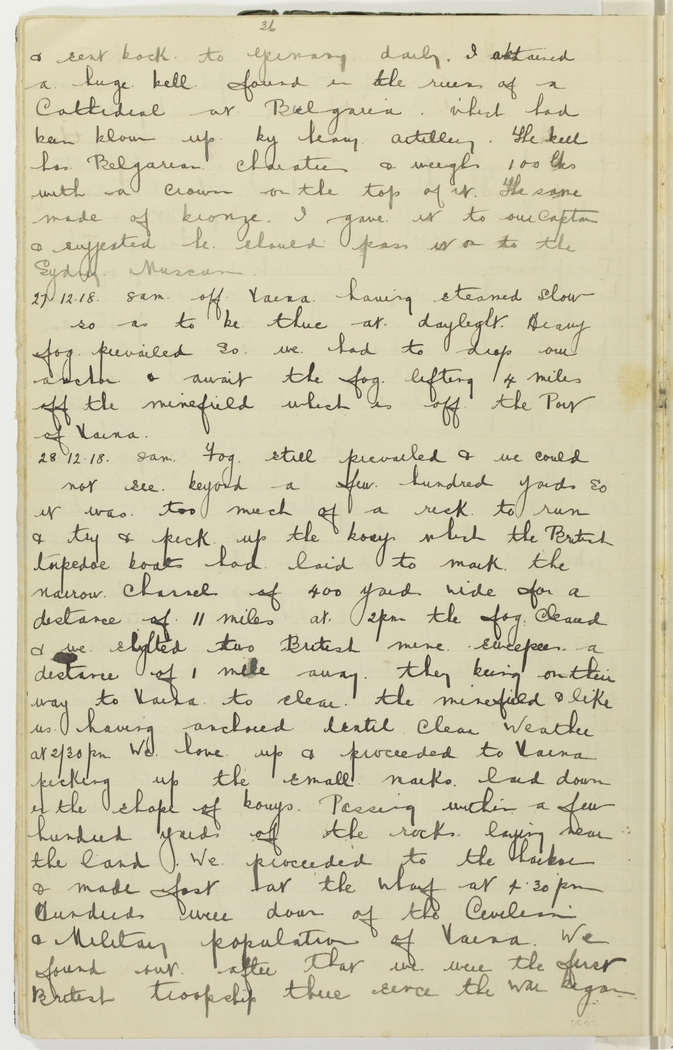 36
& sent back to Germany daily. I obtained
a huge bell found in the ruins of a
Cathedral at Bulgaria. which had
been blown up by heavy artillery. The bell
has Belgarian charaters & weighs 100 lbs
with a crown on the top of it. The same
made of bronze. I gave it to our Captain
& sujested he should pass it on to the
Sydney Museum.
27.12.18. 8am. off Varna having steamed slow
so as to be there at daylight. Heavy
fog prevailed so we had to drop our
anchor & await the fog lifting 4 miles
off the minefield which is off the Port
of Varna.
28.12.18. 8am. Fog still prevailed & we could
not see beyond a few hundred yards so
it was too much of a risk to run
& try & pick up the bouys which the British
torpedoe boats had laid to mark the
narrow Channel of 400 yards wide for a
distance of 11 miles at 2pm the fog cleared
& we sighted two British mine sweepers a
distance of 1 mile away. they being on their
way to Varna to clear the minefield & like
us having anchored until clear weather
at 2/30pm We hove up & proceeded to Varna
picking up the small marks laid down
in the shape of bouys. Passing within a few
hundred yards of the rocks laying near
the land. We proceeded to the harbor
& made fast at the wharf at 4.30pm
Hundreds were down of the Civilian
& Military population of Varna. We
found out after that we were the first
British troopship there since the war began